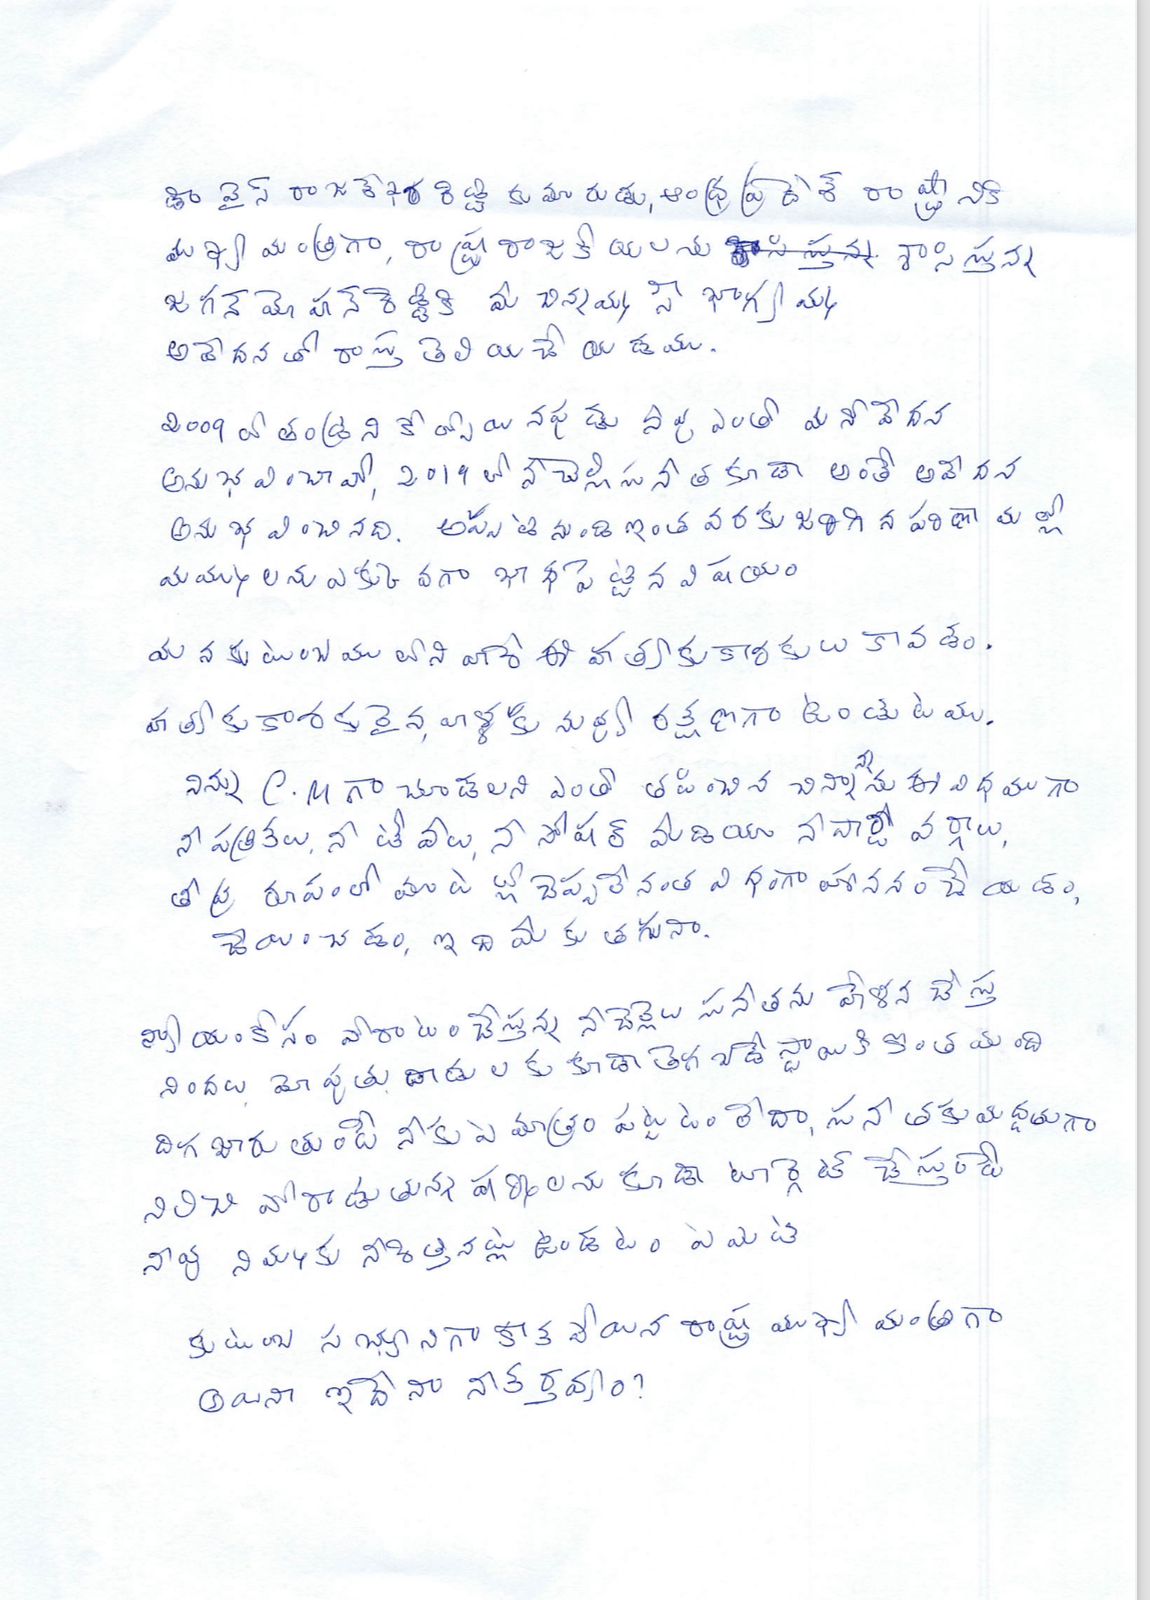 డా వైస్ రాజశేఖర రెడ్డి కుమారుడు, ఆంధ్ర ప్రదేశ్ రాష్ట్రానికి
ముఖ్యమంత్రిగా, రాష్ట్ర రాజకీయలను శాసిస్తున్న
జగన్ మోహన్ రెడ్డికి మీ చిన్నమ్మ సౌభాగ్యమ్మ
ఆవేదనతో రాస్తూ తెలియచేయడము.
2009 లో తండ్రిని కోల్పోయినపుడు నీవు ఎంతో మనోవేదన
అనుభవించావో, 2019 లో నీచెల్లి సునీత కూడా అంతే ఆవేదన
అనుభవించినది. అప్పటి నుండి ఇంత వరకు జరిగిన పరిణామల్లో
మమ్ములను ఎక్కువగా బాధపెట్టిన విషయం
మన కుటుంబములోని వారే ఈ హత్యకు కారకులు కావడం.
హత్యకు కారకులైన, వాళ్లకు నువ్వు రక్షణగా ఉంటుటము.
నిన్ను C.M గా చూడలని ఎంతో తపించిన చిన్నాన్నను ఈ విధముగా
నీ పత్రికలు, నీ టీవీలు, నీ సోషల్ మీడియా నీ పార్టీ వర్గాలు,
తీవ్ర రూపంలో మాటల్లో చెప్పలేనంత విధంగా హననం చేయడం,
చేయించడం, ఇది మీకు తగునా.
న్యాయంకోసం పోరాటం చేస్తున్న నీచెల్లెలు సునీతను హేళన చేస్తూ
నిందలు మోపుతు దాడులకు కూడా తెగబడే స్థాయికి కొంతమంది
దిగజారుతుంటే నీకు ఏ మాత్రం పట్టటం లేదా, సునీతకు మద్దతుగా
నిలిచి పోరాడుతున్న షర్మిలను కూడా టార్గెట్ చేస్తుంటే
నీవు నిమ్మకు నీరెత్తినట్లు ఉండటం ఏమిటి
కుటుంబ సభ్యునిగా కాక పోయిన రాష్ట్ర ముఖ్యమంత్రిగా
అయినా ఇదేనా నీ కర్తవ్యం?